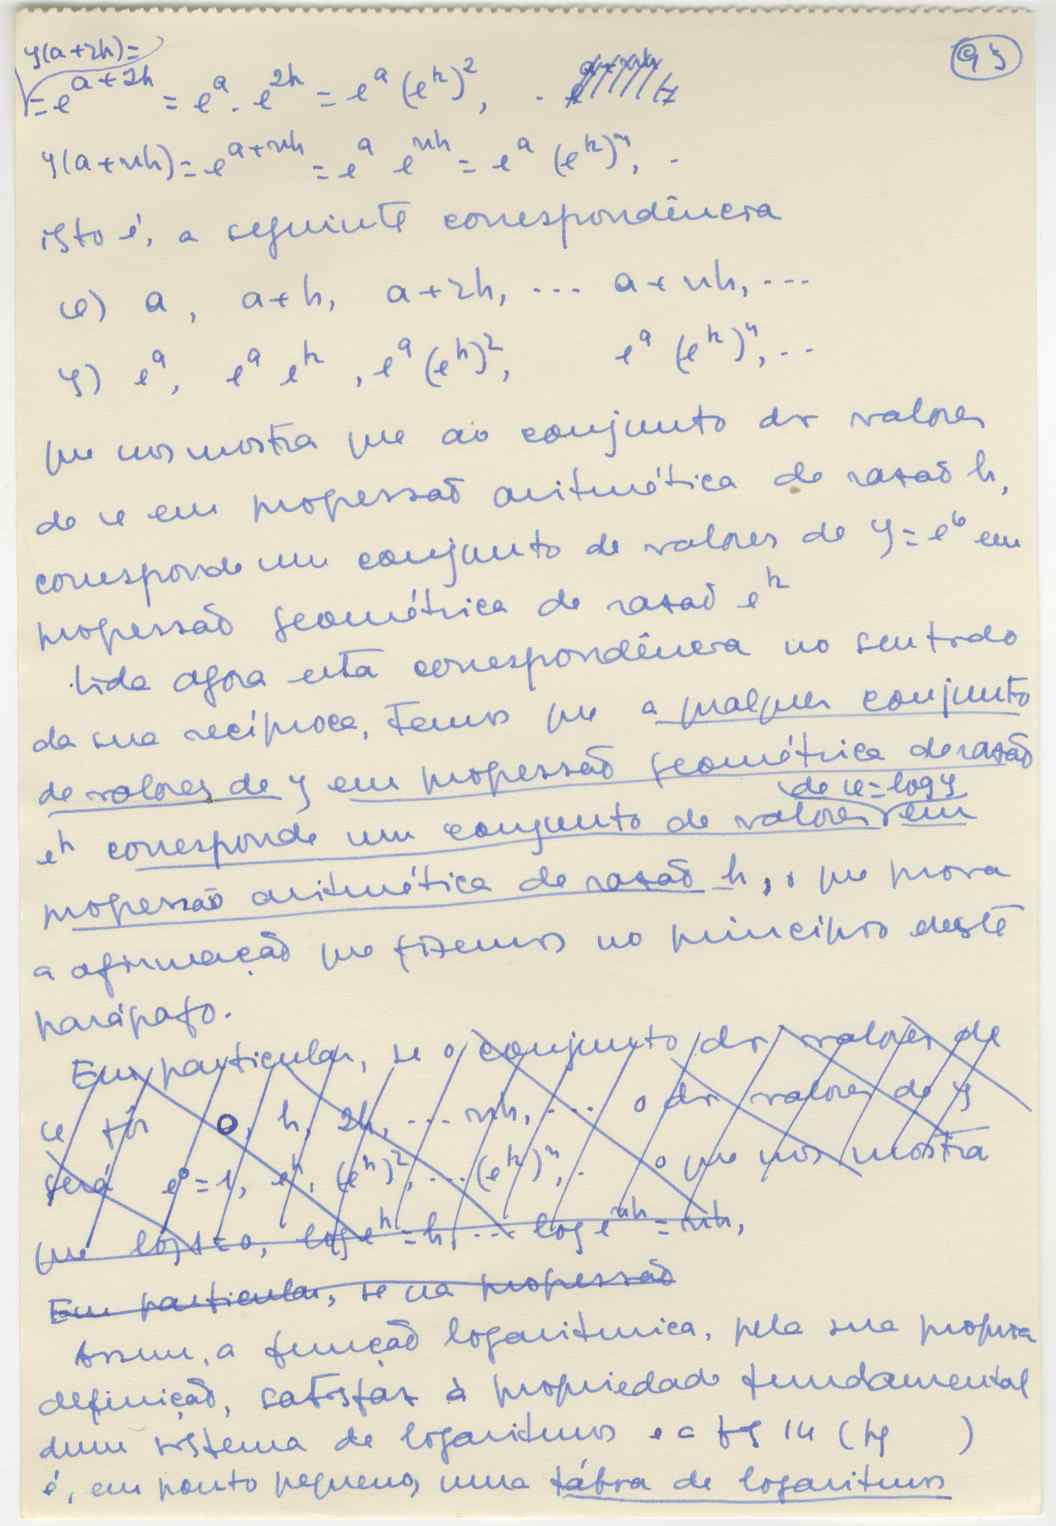 95
y(a+2h)=
= e^{a+2h} = e^a . e^{2h} = e^a (e^h)^2, .
y(a+nh) = e^{a+nh} = e^a e^{nh} = e^a (e^h)^n, .
isto é, a seguinte correspondência
x) a, a+h, a+2h, ... a+nh, ...
y) e^a, e^a e^h, e^a (e^h)^2, e^a (e^h)^n, ...
que nos mostra que ao conjunto dos valores
de x em progressão aritmética de razão h,
corresponde um conjunto de valores de y = e^x em
progressão geométrica de razão e^h
Lida agora esta correspondência no sentido
da sua recíproca, temos que a qualquer conjunto
de valores de y em progressão geométrica de razão
de x=log y
e^h corresponde um conjunto de valores em
progressão aritmética de razão h, o que prova
a afirmação que fizemos no princípio deste
parágrafo.
Em particular, se o conjunto dos valores de
x fôr 0, h, 2h, ... nh, ... o dos valores de y
será e^0 = 1, e^h, (e^h)^2, ... (e^h)^n, . o que nos mostra
que log 1 = 0, log e^h = h, ... log e^{nh} = nh,
Em particular, se na progressão
Assim, a função logarítmica, pela sua própria
definição, satisfaz à propriedade fundamental
dum sistema de logaritmos e a fig 14 (pg )
é, em ponto pequeno, uma tábua de logaritmos